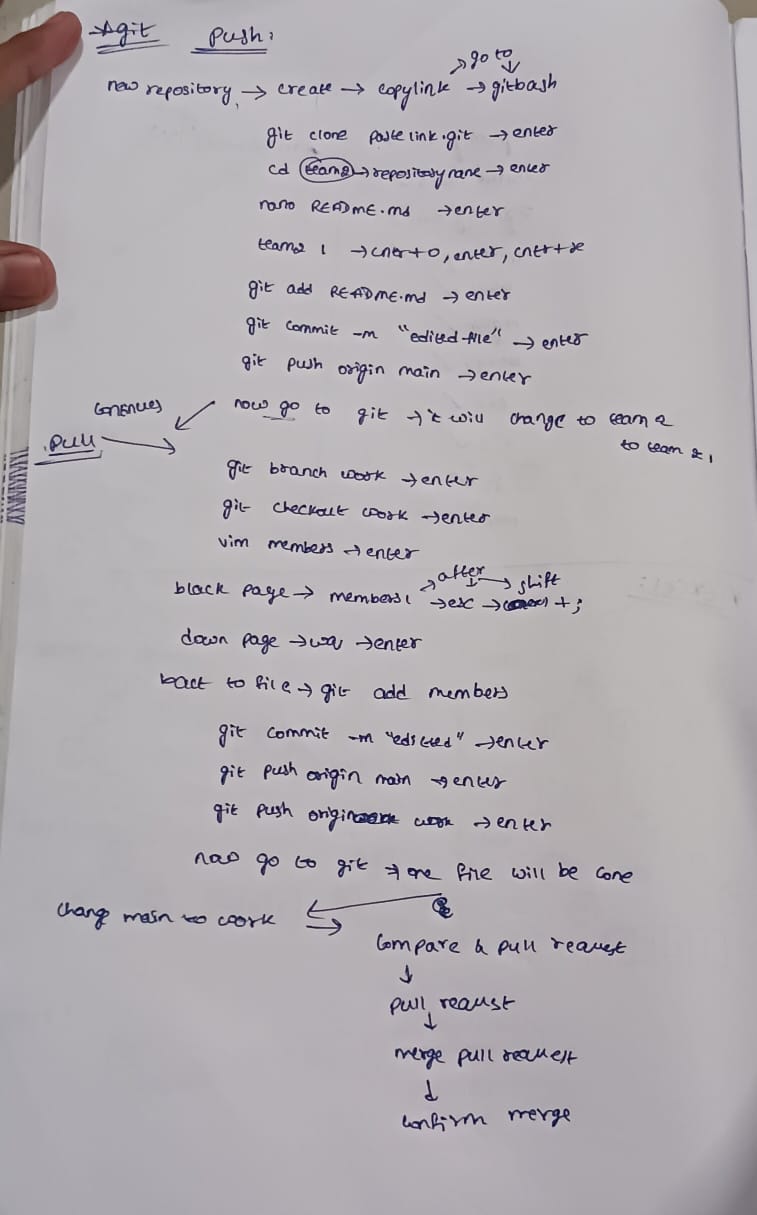 → git push:
→ go to
new repository → create → copy link → gitbash
git clone paste link.git → enter
cd team2 → repository name → enter
nano README.md → enter
team2 1 → cntr+o, enter, cntr+x
git add README.md → enter
git commit -m "edited-file" → enter
git push origin main → enter
continues now go to git → it will change to team 2
to team 2 1
Pull
git branch work → enter
git checkout work → enter
vim members → enter
→ after → shift
black page → members1 → esc → +;
down page → wq → enter
back to file → git add members
git commit -m "edited" → enter
git push origin main → enter
git push origin work → enter
now go to git → one file will be come
change main to work
Compare & pull request
↓
pull request
↓
merge pull request
↓
confirm merge